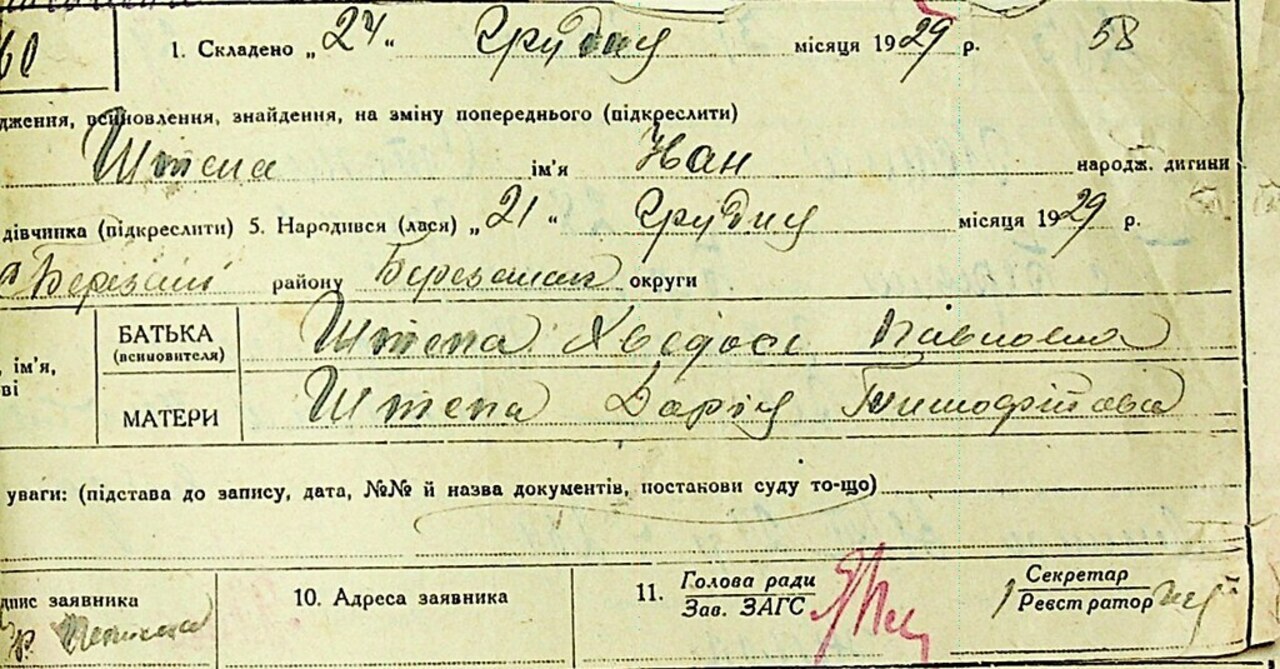 60
1. Складено „24“ Грудня місяця 1929 р. 58
дження, всиновлення, знайдення, на зміну попереднього (підкреслити)
Штепа ім’я Іван народж. дитини
дівчинка (підкреслити) 5. Народився (лася) „21“ Грудня місяця 1929 р.
Березань району округи
БАТЬКА Штепа Хведось
(всиновителя)
, ім’я,
ві
МАТЕРИ Штепа Дарія Тимофіївна
уваги: (підстава до запису, дата, №№ й назва документів, постанови суду то-що)
дпис заявника 10. Адреса заявника 11. Голова ради Секретар
Зав. ЗАГС Реєстратор